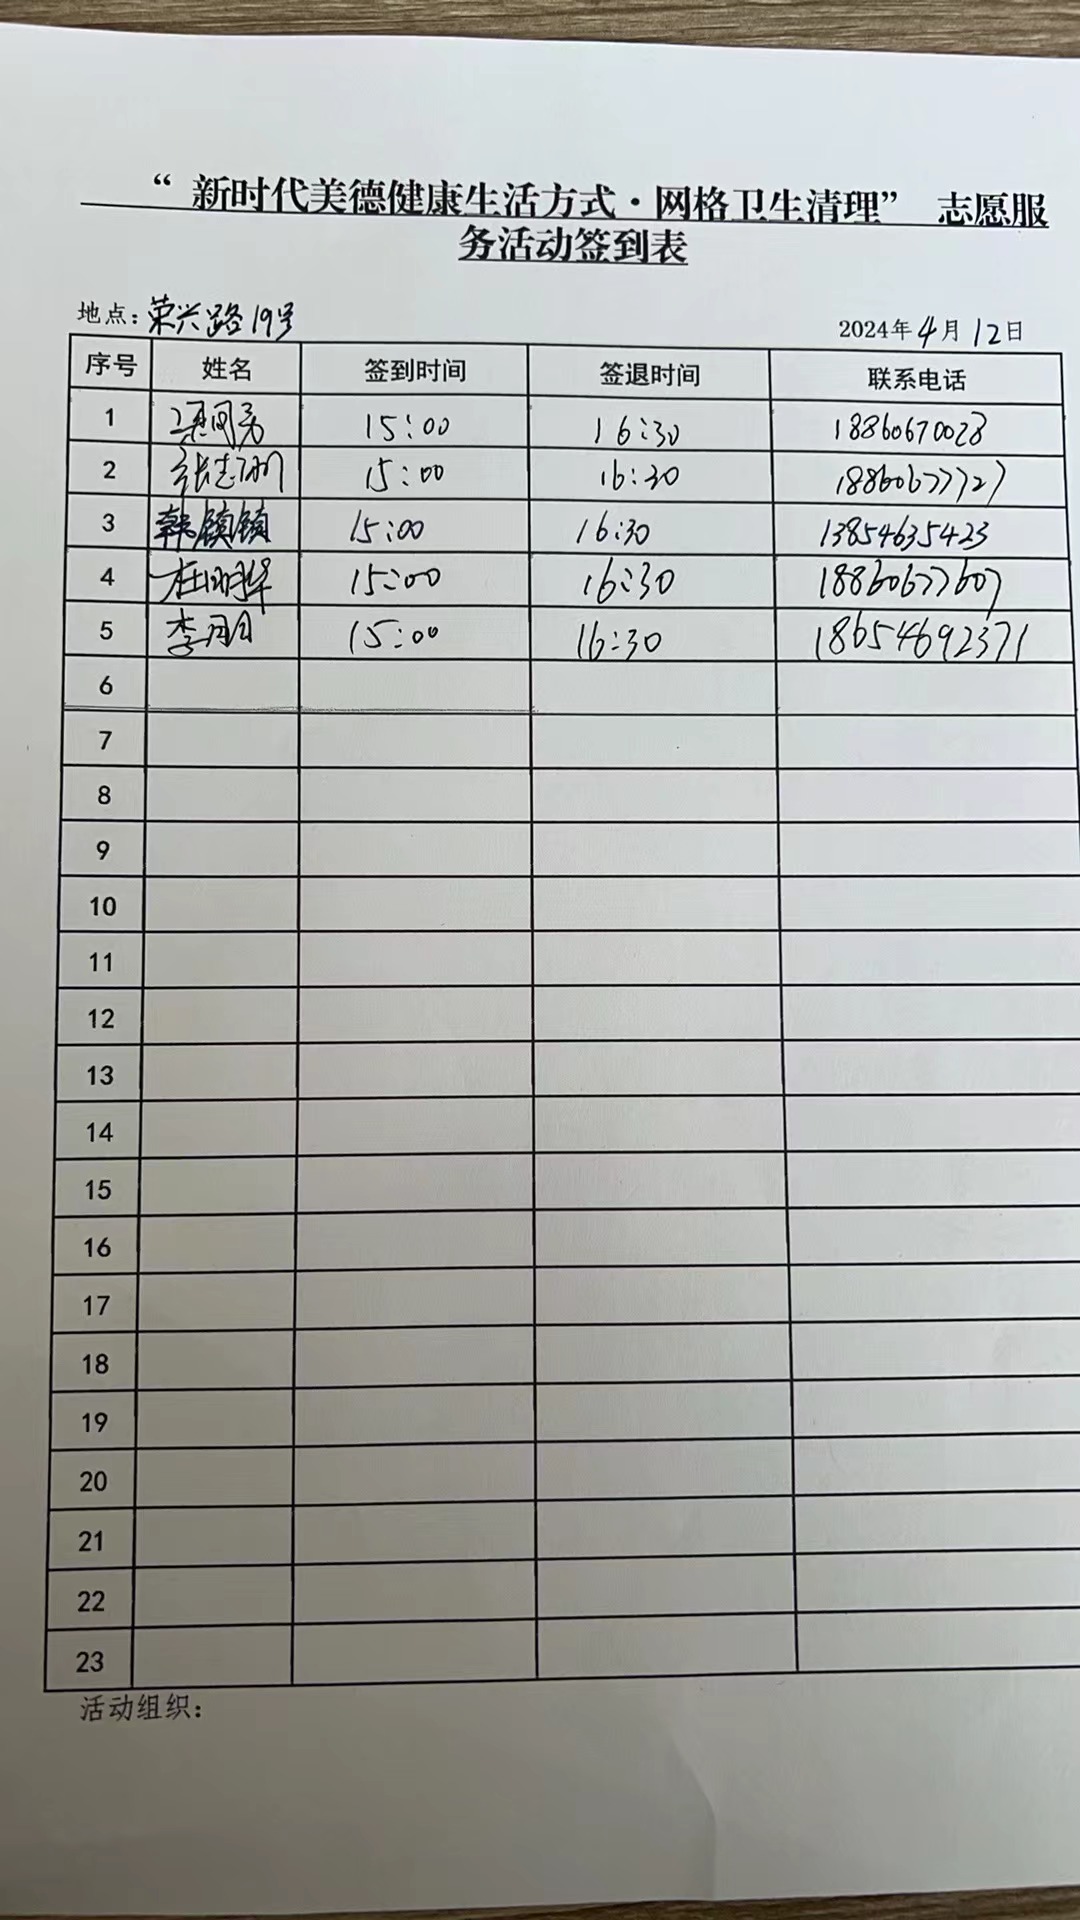 “ 新时代美德健康生活方式·网格卫生清理” 志愿服
务活动签到表
地点: 荣兴路19号
2024年4月12日
序号 姓名 签到时间 签退时间 联系电话
1 15:00 16:30 18860670028
2 15:00 16:30 18860677727
3 韩镇镇 15:00 16:30 13854635423
4 15:00 16:30 18860677607
5 李明 15:00 16:30 18654692371
6
7
8
9
10
11
12
13
14
15
16
17
18
19
20
21
22
23
活动组织: